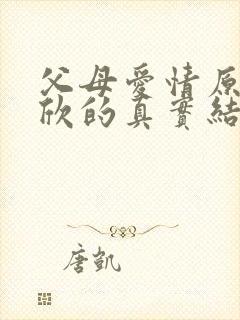 父母愛情原
欣的真實結
唐凱